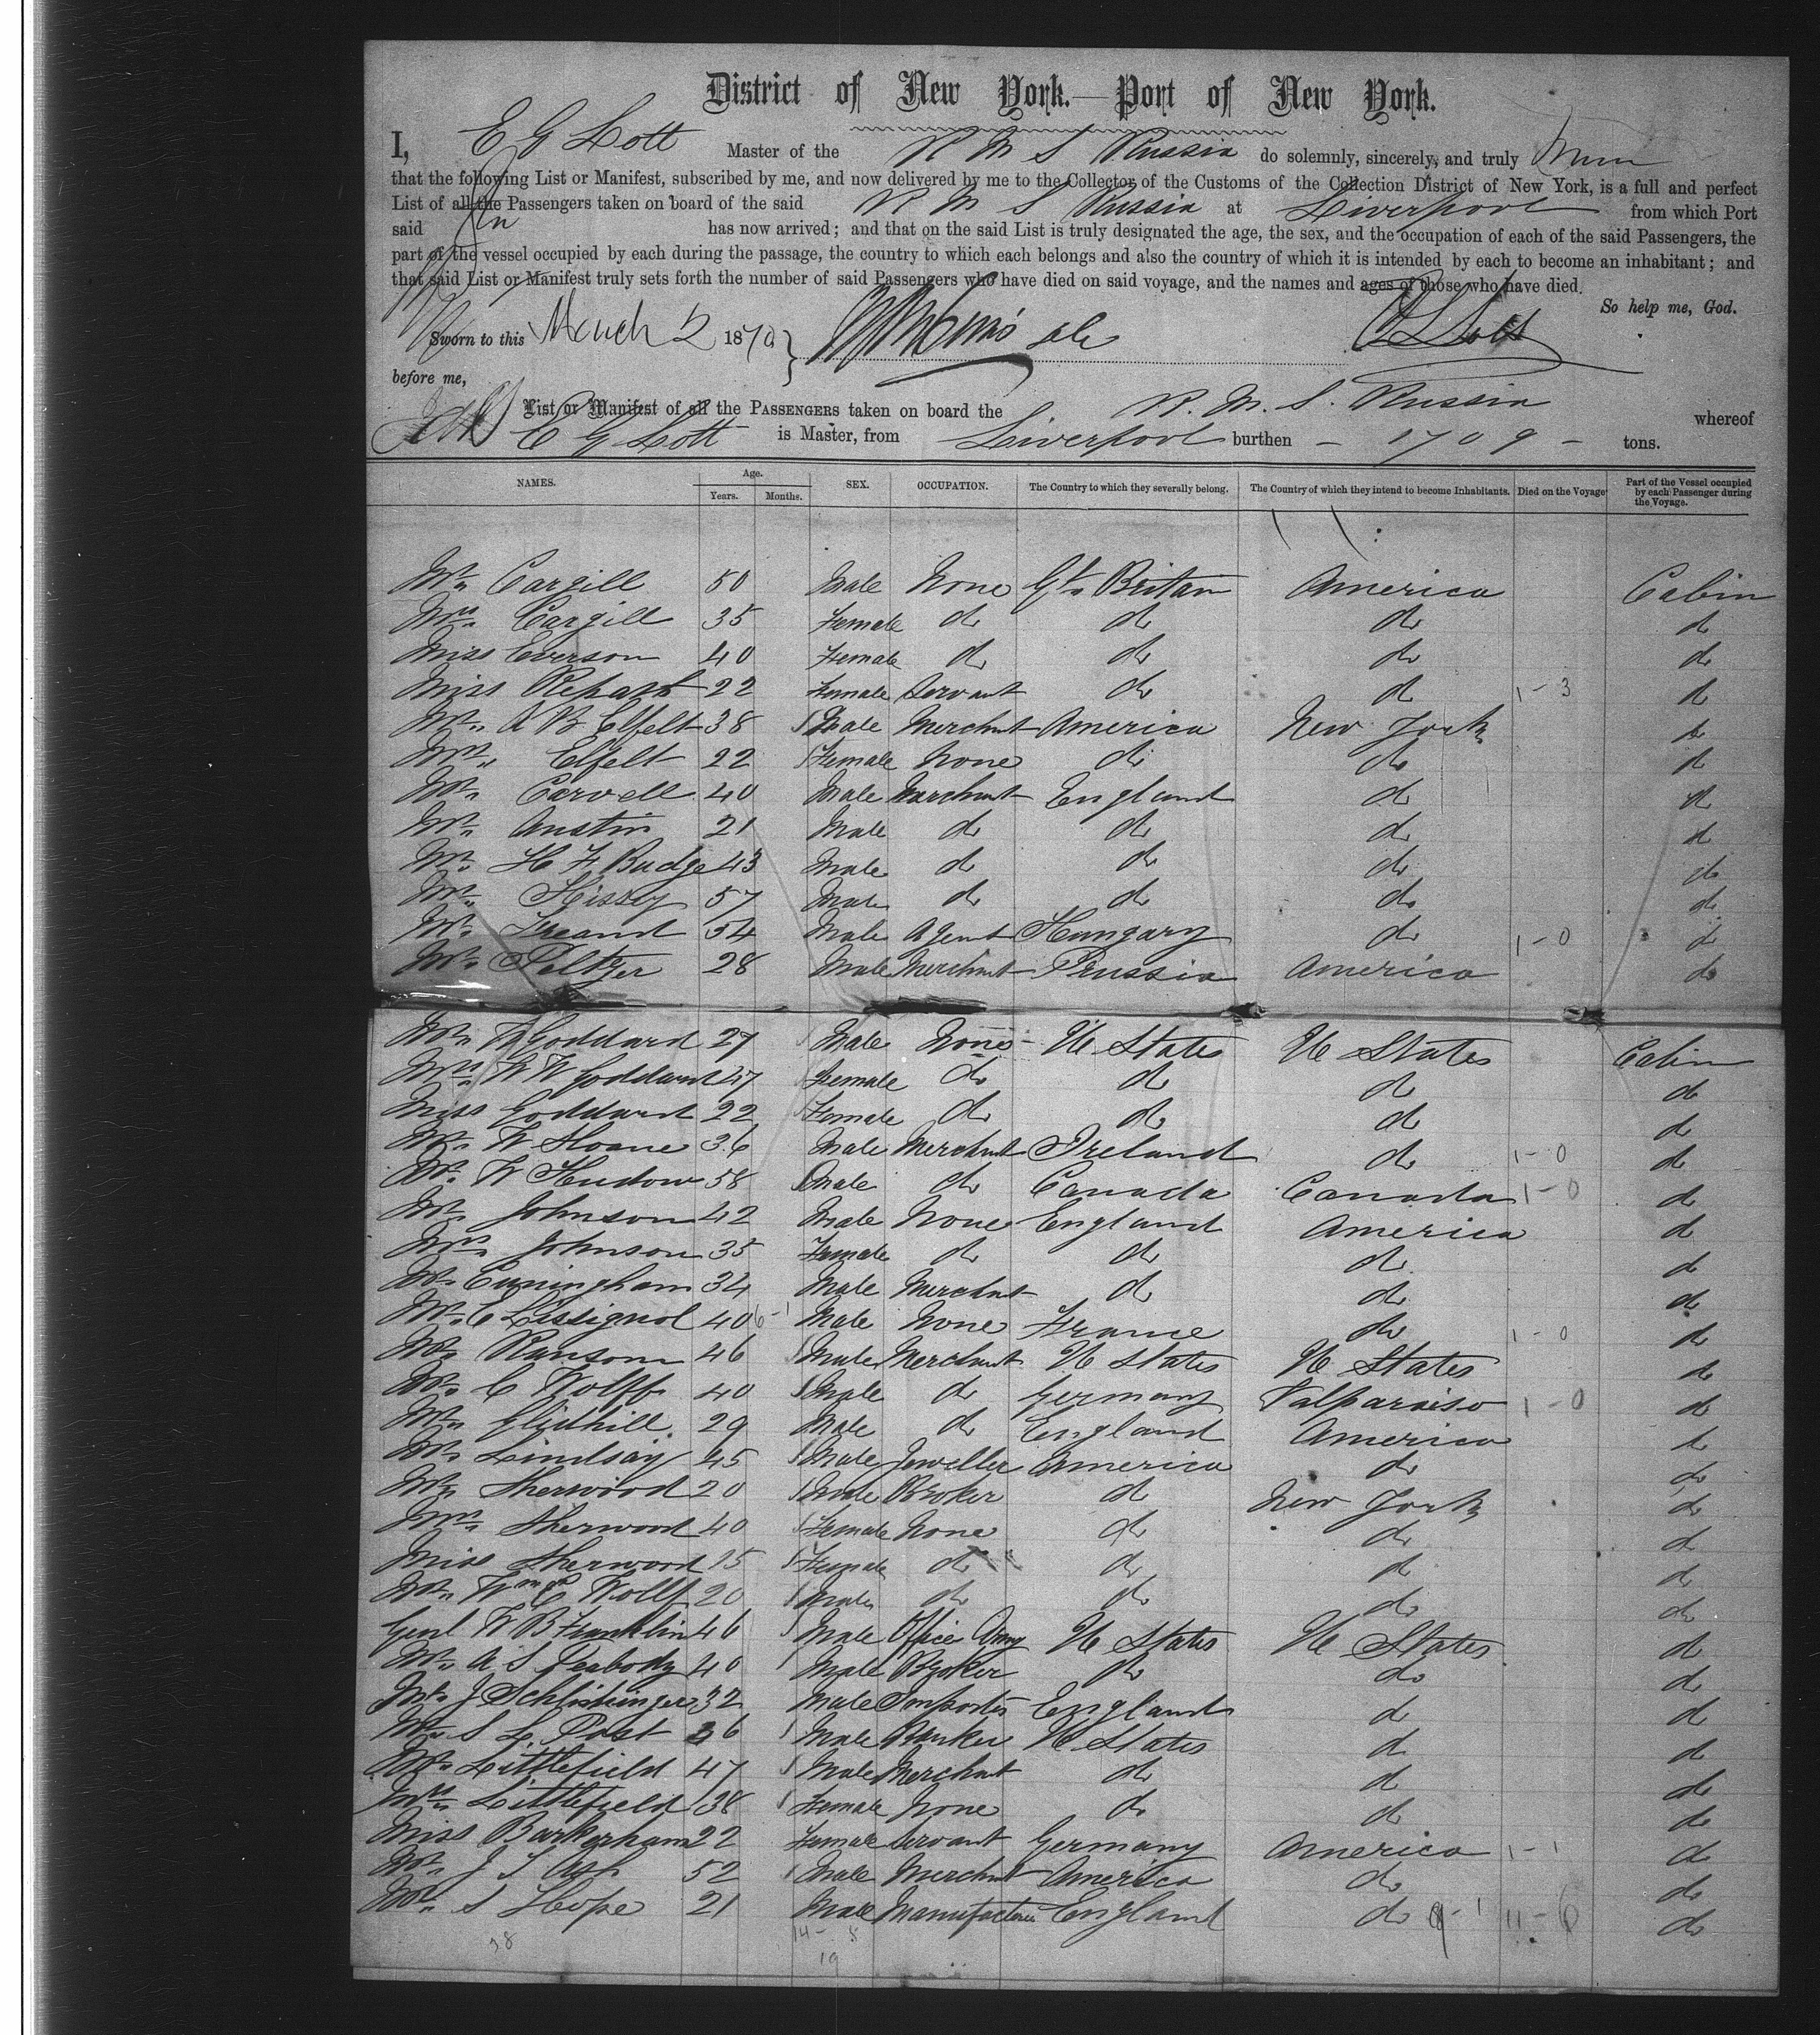 District of New York.—Port of New York.
I, E G Lott Master of the R M S Russia do solemnly, sincerely, and truly
that the following List or Manifest, subscribed by me, and now delivered by me to the Collector of the Customs of the Collection District of New York, is a full and perfect
List of all the Passengers taken on board of the said R M S Russia at Liverpool from which Port
said has now arrived; and that on the said List is truly designated the age, the sex, and the occupation of each of the said Passengers, the
part of the vessel occupied by each during the passage, the country to which each belongs and also the country of which it is intended by each to become an inhabitant; and
that said List or Manifest truly sets forth the number of said Passengers who have died on said voyage, and the names and ages of those who have died.
So help me, God.
Sworn to this March 2 1870 } E G Lott
before me,
List or Manifest of all the PASSENGERS taken on board the R. M. S. Russia whereof
E G Lott is Master, from Liverpool burthen - 1709 - tons.
NAMES. Age. Years. Months. SEX. OCCUPATION. The Country to which they severally belong. The Country of which they intend to become Inhabitants. Died on the Voyage Part of the Vessel occupied by each Passenger during the Voyage.
Mr. Cargill 50 Male None Gt. Britain America Cabin
Mrs. Cargill 35 Female do do do do
Miss Everson 40 Female do do do do
Miss 22 Female Servant do do 1-3 do
Mr. A B Elfelt 38 Male Merchant America New York do
Mrs. Elfelt 22 Female None do do do
Mr. Carvell 40 Male Merchant England do do
Mr. Austin 21 Male do do do do
Mr. H F Budge 43 Male do do do do
Mr. Hissey 57 Male do do do do
Mr. 54 Male Agent Hungary do 1-0 do
Mr. Peltzer 28 Male Merchant Prussia America do
Mr. W Goddard 27 Male None U States U States Cabin
Mrs. W W Goddard 27 Female do do do do
Miss Goddard 22 Female do do do do
Mr. W Sloane 36 Male Merchant Ireland do 1-0 do
Mr. W 58 Male do Canada Canada 1-0 do
Mr. Johnson 42 Male None England America do
Mrs. Johnson 35 Female do do do do
Mr. Cuningham 34 Male Merchant do do do
Mr. C Lissignol 40 6-1 Male None France do 1-0 do
Mr. Ransom 46 Male Merchant U States U States do
Mr. C Wolff 40 Male do Germany Valparaiso 1-0 do
Mr. 29 Male do England America do
Mr. Lindsay 45 Male Jeweller America do do
Mr. Sherwood 20 Male Broker do New York do
Mrs. Sherwood 40 Female None do do do
Miss Sherwood 15 Female do do do do
Mr. Wm C Wolff 20 Male do do do do
Genl W B Franklin 46 Male Office Army U States U States do
Mr. A S Peabody 40 Male Broker do do do
Mr. J Schlishinger 32 Male Importer England do do
Mr. S L Post 36 Male Banker U States do do
Mr. Littlefield 47 Male Merchant do do do
Mrs. Littlefield 38 Female None do do do
Miss 22 Female Servant Germany America 1-1 do
Mr. J T Ash 52 Male Merchant America do do
Mr. S Hope 21 Male Manufacturer England do 9-1 11-6 do
38 14-5
19